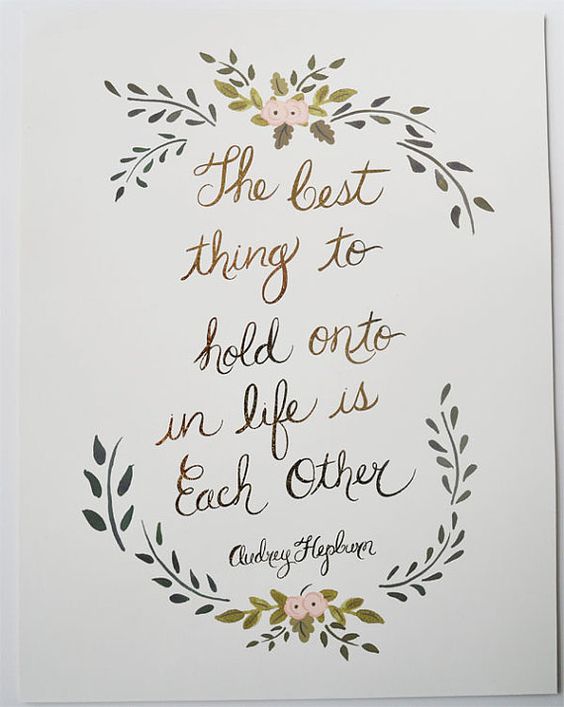 The best
thing to
hold onto
in life is
Each Other
Audrey Hepburn